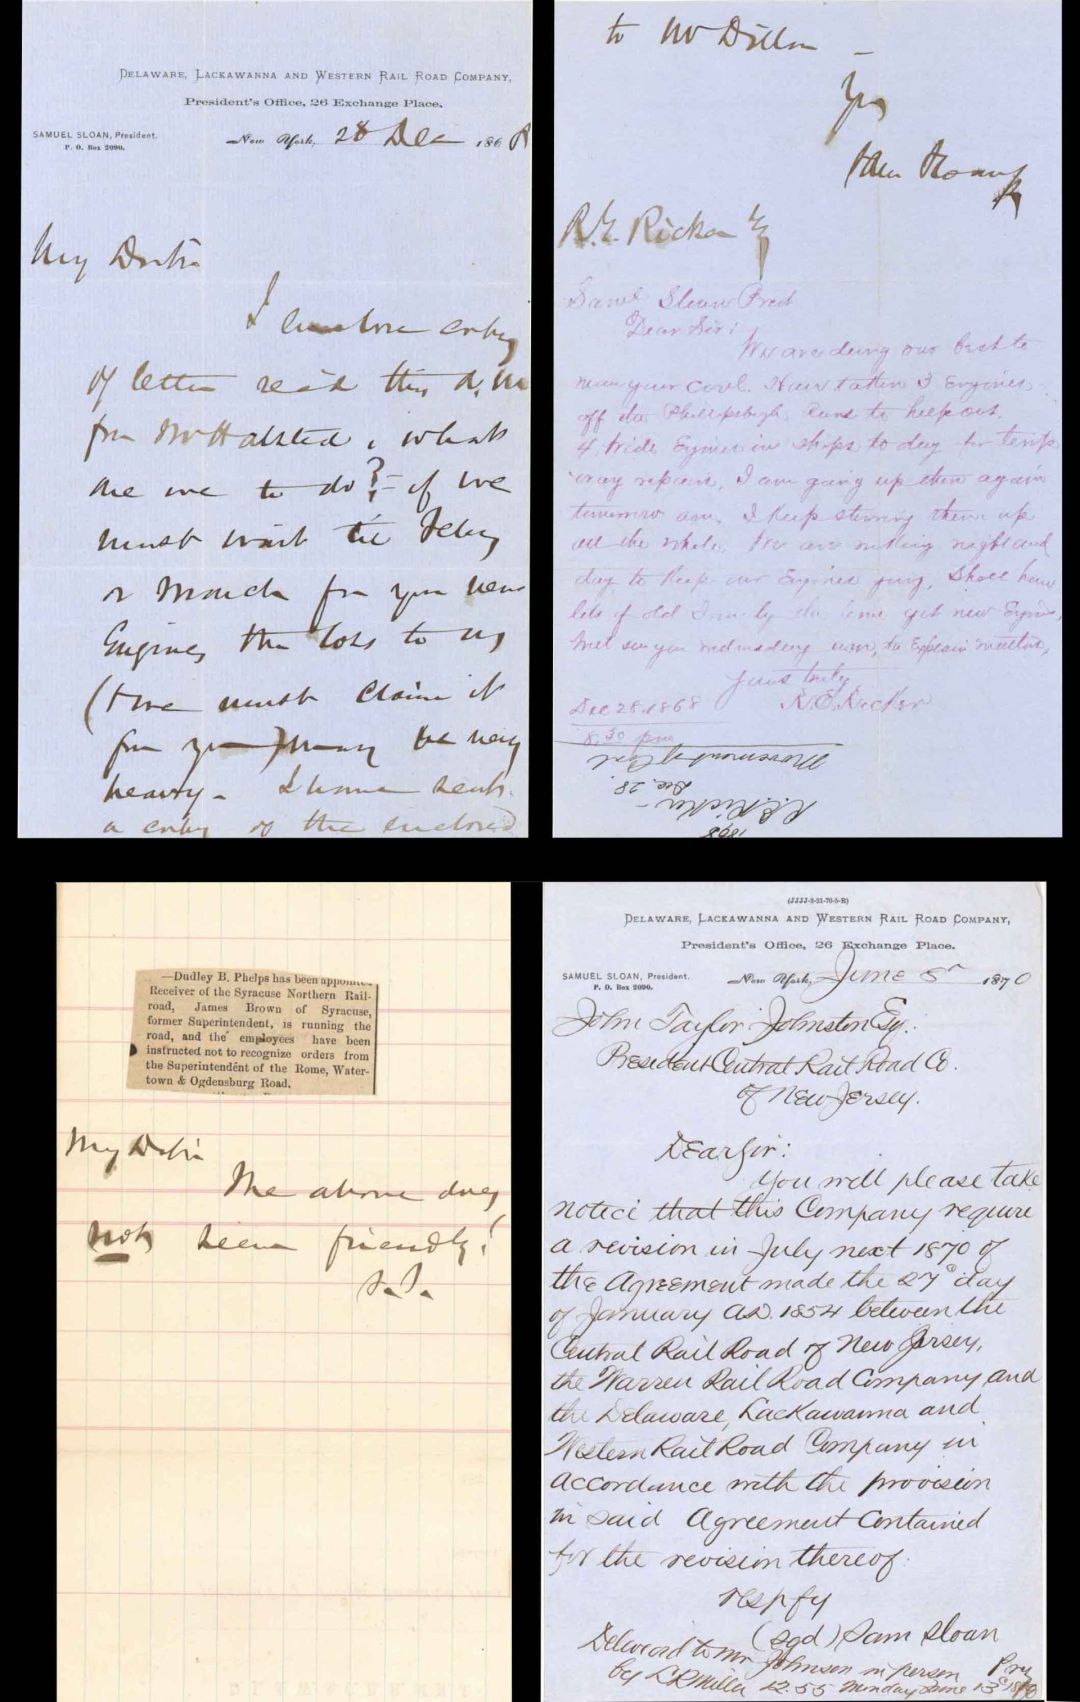 DELAWARE, LACKAWANNA AND WESTERN RAIL ROAD COMPANY,
President's Office, 26 Exchange Place.
SAMUEL SLOAN, President.
P. O. Box 2090.
New York, 28 Dec 1868
My
I enclose copy
of letter read this
from Mr Halsted, what
are we to do? - if we
must wait til Feby
or March for your new
Engines, the loss to us
(& we must claim it
from you) may be very
heavy. I have sent
a copy of the enclosed
to Mr Dillon -
Yrs
Sam Sloan
R.E. Ricker Esq
Saml Sloan Prest
Dear Sir:
We are doing our best to
move your coal. Have taken 3 Engines
off the Phillipsburgh runs to help out.
4 wide Engines in shops to day for temp
orary repairs. I am going up there again
tomorrow am. I keep stirring them up
all the while. We are working night and
day to keep our Engines going. Shall have
lots of old by the time get new Engines,
Will see you wednesday to Explain matters,
Yours truly
R.E. Ricker
Dec 28, 1868
8.30 pm
R.E. Ricker
Dec. 28
1868
Movement of Coal
—Dudley B. Phelps has been appointed
Receiver of the Syracuse Northern Rail-
road, James Brown of Syracuse,
former Superintendent, is running the
road, and the employees have been
instructed not to recognize orders from
the Superintendent of the Rome, Water-
town & Ogdensburg Road.
My
The above does
not seem friendly!
S.S.
(JJJJ-3-31-70-5-R)
DELAWARE, LACKAWANNA AND WESTERN RAIL ROAD COMPANY,
President's Office, 26 Exchange Place.
SAMUEL SLOAN, President.
P. O. Box 2090.
New York, June 8th 1870
John Taylor Johnston Esq.
President Central Rail Road Co.
of New Jersey.
Dear Sir:
You will please take
notice that this Company require
a revision in July next 1870 of
the Agreement made the 27th day
of January AD. 1854 between the
Central Rail Road of New Jersey,
the Warren Rail Road Company and
the Delaware, Lackawanna and
Western Rail Road Company in
accordance with the provision
in said Agreement contained
for the revision thereof.
respfy
(sgd) Sam Sloan
Delivered to Mr Johnson in person
by Miller 12.55 Pm Monday June 13th 1870